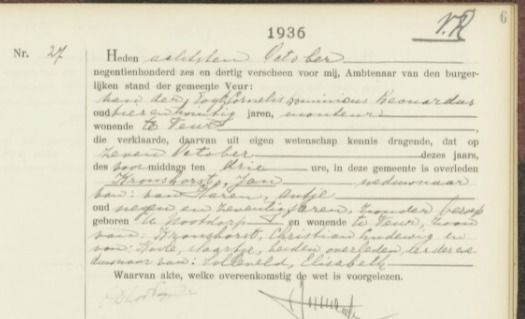 6
1936
V.R
Nr. 27
Heden achtsten October
negentienhonderd zes en dertig verscheen voor mij, Ambtenaar van den burger-
lijken stand der gemeente Veur:
van der Cornelis Dominicus Leonardus
oud vier en twintig jaren, monteur
wonende te Veur,
die verklaarde, daarvan uit eigen wetenschap kennis dragende, dat op
zeven October dezes jaars,
des voormiddags ten drie ure, in deze gemeente is overleden
Kronshorst, Jan weduwnaar
van: van Antje
oud negen en zeventig jaren, zonder beroep
geboren te Nootdorp en wonende te Veur, zoon
van: Kronshorst, Christiaan Lundewig en
van: Maartje, beiden overleden, eerder we-
duwnaar van: Zolleveld, Elisabeth
Waarvan akte, welke overeenkomstig de wet is voorgelezen.